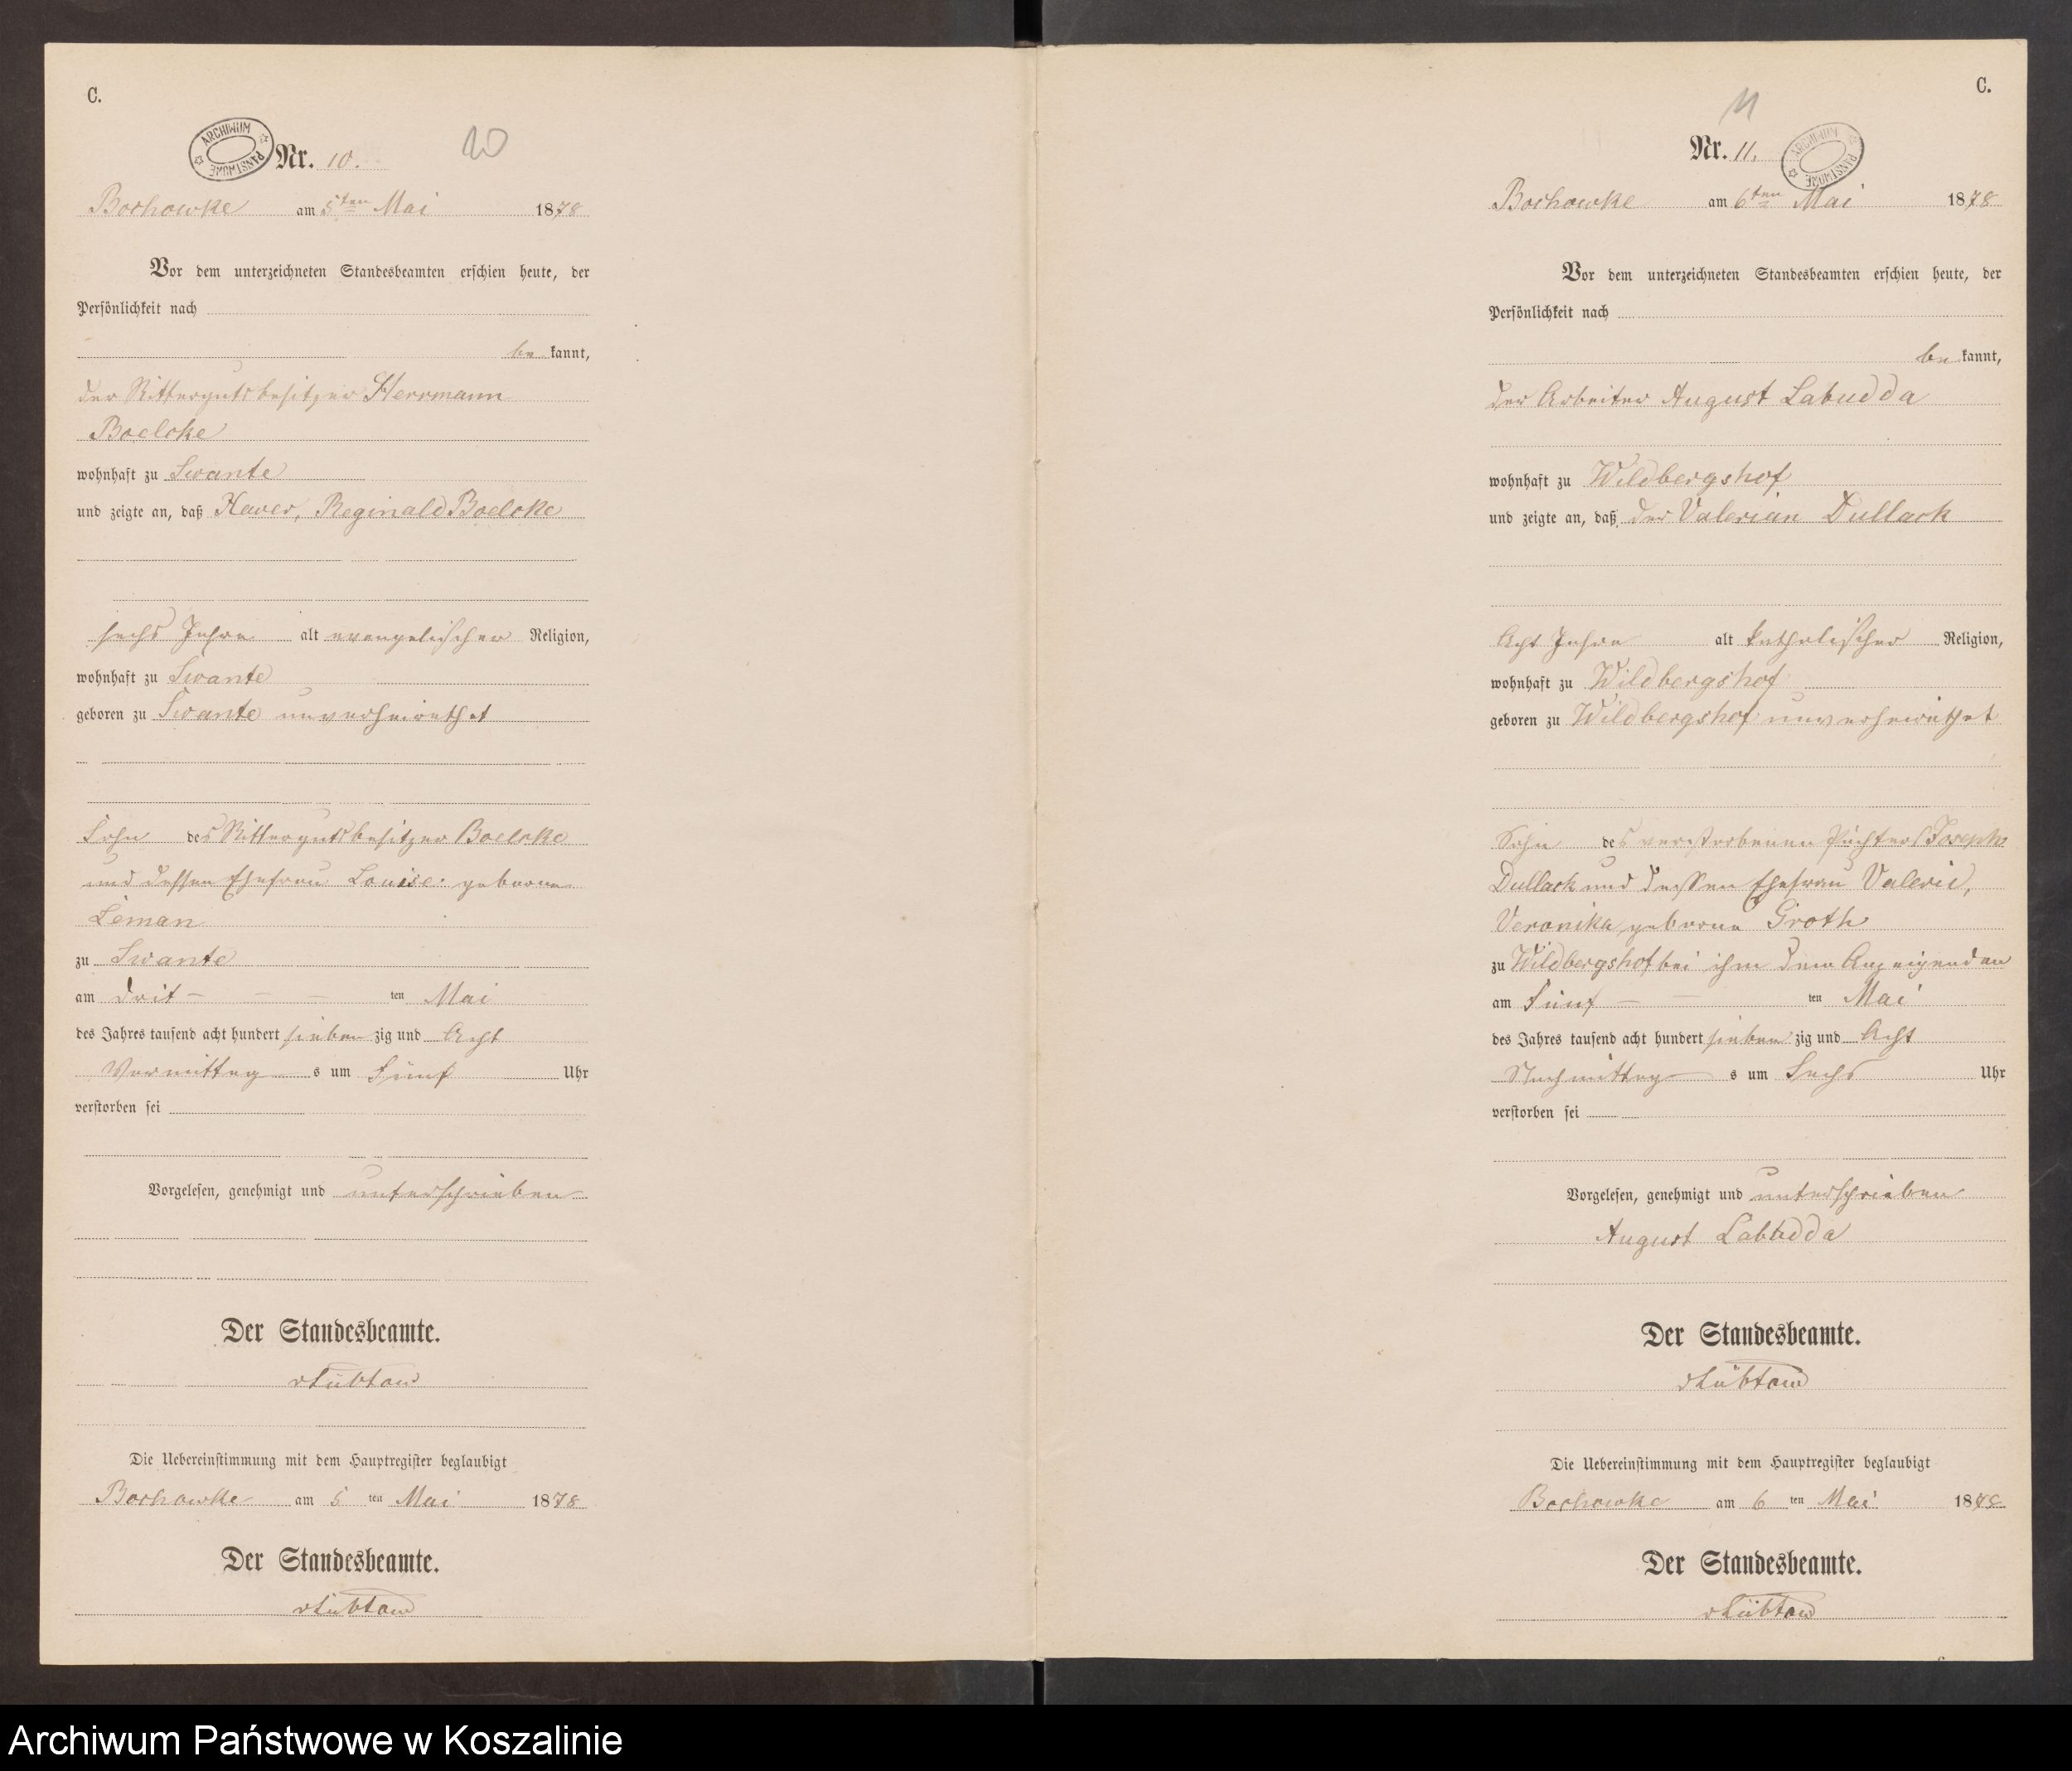 C.
ARCHIWUM PAŃSTWOWE
Nr. 10.
10
Borhowke am 5ten Mai 1878
Vor dem unterzeichneten Standesbeamten erschien heute, der
Persönlichkeit nach
be kannt,
der Rittergutsbesitzer Herrmann
Boelcke
wohnhaft zu Swante
und zeigte an, daß Xaver, Reginald Boelcke
sechs Jahre alt evangelischer Religion,
wohnhaft zu Swante
geboren zu Swante unverheirathet
Sohn des Rittergutsbesitzer Boelcke
und dessen Ehefrau Louise geborne
Leman
zu Swante
am drit ten Mai
des Jahres tausend acht hundert sieben zig und Acht
Vormittag s um Fünf Uhr
verstorben sei
Vorgelesen, genehmigt und unterschrieben
Der Standesbeamte.
vLübtow
Die Uebereinstimmung mit dem Hauptregister beglaubigt
Borhowke am 5 ten Mai 1878
Der Standesbeamte.
vLübtow
C.
11
Nr. 11.
ARCHIWUM PAŃSTWOWE
Borhowke am 6ten Mai 1878
Vor dem unterzeichneten Standesbeamten erschien heute, der
Persönlichkeit nach
be kannt,
der Arbeiter August Labudda
wohnhaft zu Wildbergshof
und zeigte an, daß der Valerian Dullack
Acht Jahre alt katholischer Religion,
wohnhaft zu Wildbergshof
geboren zu Wildbergshof unverheirathet
Sohn des verstorbenen Pächters Joseph
Dullack und dessen Ehefrau Valerie,
Veronika geborne Groth
zu Wildbergshof bei ihm dem Anzeigenden
am Fünf ten Mai
des Jahres tausend acht hundert sieben zig und Acht
Nachmittag s um Sechs Uhr
verstorben sei
Vorgelesen, genehmigt und unterschrieben
August Labudda
Der Standesbeamte.
vLübtow
Die Uebereinstimmung mit dem Hauptregister beglaubigt
Borhowke am 6 ten Mai 1878
Der Standesbeamte.
vLübtow
Archiwum Państwowe w Koszalinie